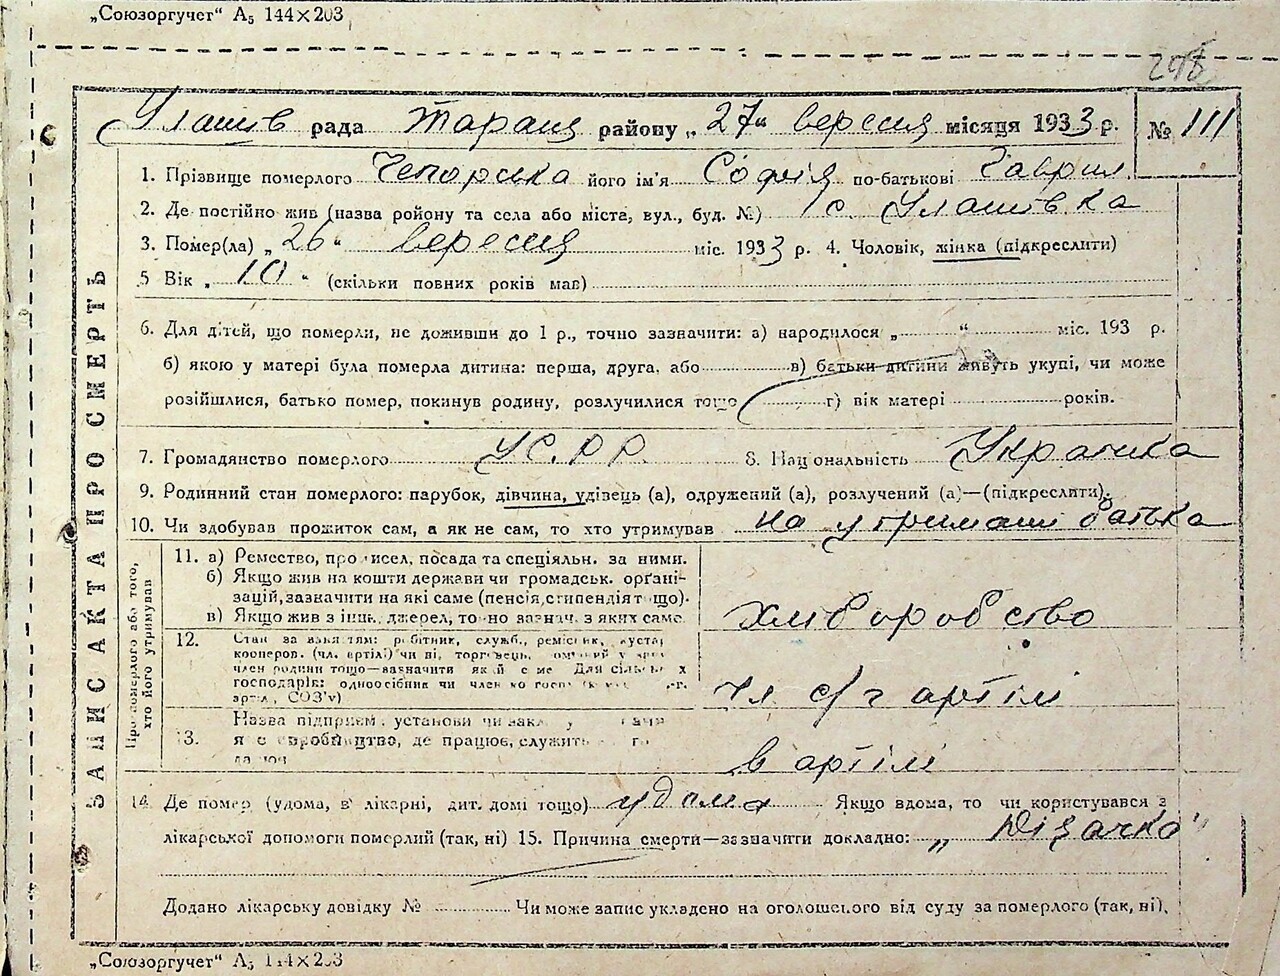 „Союзоргучет“ А₅ 144×203
Улашів рада Таращ району „27“ вересня місяця 1933 р. № 111
1. Прізвище померлого Чепорська його ім'я Софія по-батькові Гаврил.
2. Де постійно жив (назва ройону та села або міста, вул., буд. №) с. Улашівка
3. Помер(ла) „26“ вересня міс. 1933 р. 4. Чоловік, жінка (підкреслити)
5 Вік „10“ (скільки повних років мав)
6. Для дітей, що померли, не доживши до 1 р., точно зазначити: а) народилося „ “ міс. 193 р.
б) якою у матері була померла дитина: перша, друга, або в) батьки дитини живуть укупі, чи може
розійшлися, батько помер, покинув родину, розлучилися тощо г) вік матері років.
7. Громадянство померлого УСРР 8. Національність Українка
9. Родинний стан померлого: парубок, дівчина, удівець (а), одружений (а), розлучений (а)—(підкреслити).
10. Чи здобував прожиток сам, а як не сам, то хто утримував на утриманні батька
ЗАПИС АКТА ПРО СМЕРТЬ
Про померлого або того, хто його утримував
11. а) Ремество, промисел, посада та спеціяльн. за ними.
б) Якщо жив на кошти держави чи громадськ. орґані-
зацій, зазначити на які саме (пенсія, стипендія тощо).
в) Якщо жив з інш. джерел, точно зазнач. з яких саме
хліборобство
12. Стан за заняттям: робітник, служб., ремісник, кустар
кооперов. (чл. артілі) чи ні, торговець,
член родини тощо—зазначити який саме Для сільськ
господарів: одноосібник чи член
артіл, СОЗ'у)
чл с/г артілі
13. Назва підприєм. установи чи
виробництво, де працює, служить
в артілі
14. Де помер (удома, в лікарні, дит. домі тощо) удома Якщо вдома, то чи користувався з
лікарської допомоги померлий (так, ні) 15. Причина смерти—зазначити докладно: „Дізачка“
Додано лікарську довідку № Чи може запис укладено на оголошсього від суду за померлого (так, ні).
„Союзоргучет“ А₅ 144×203